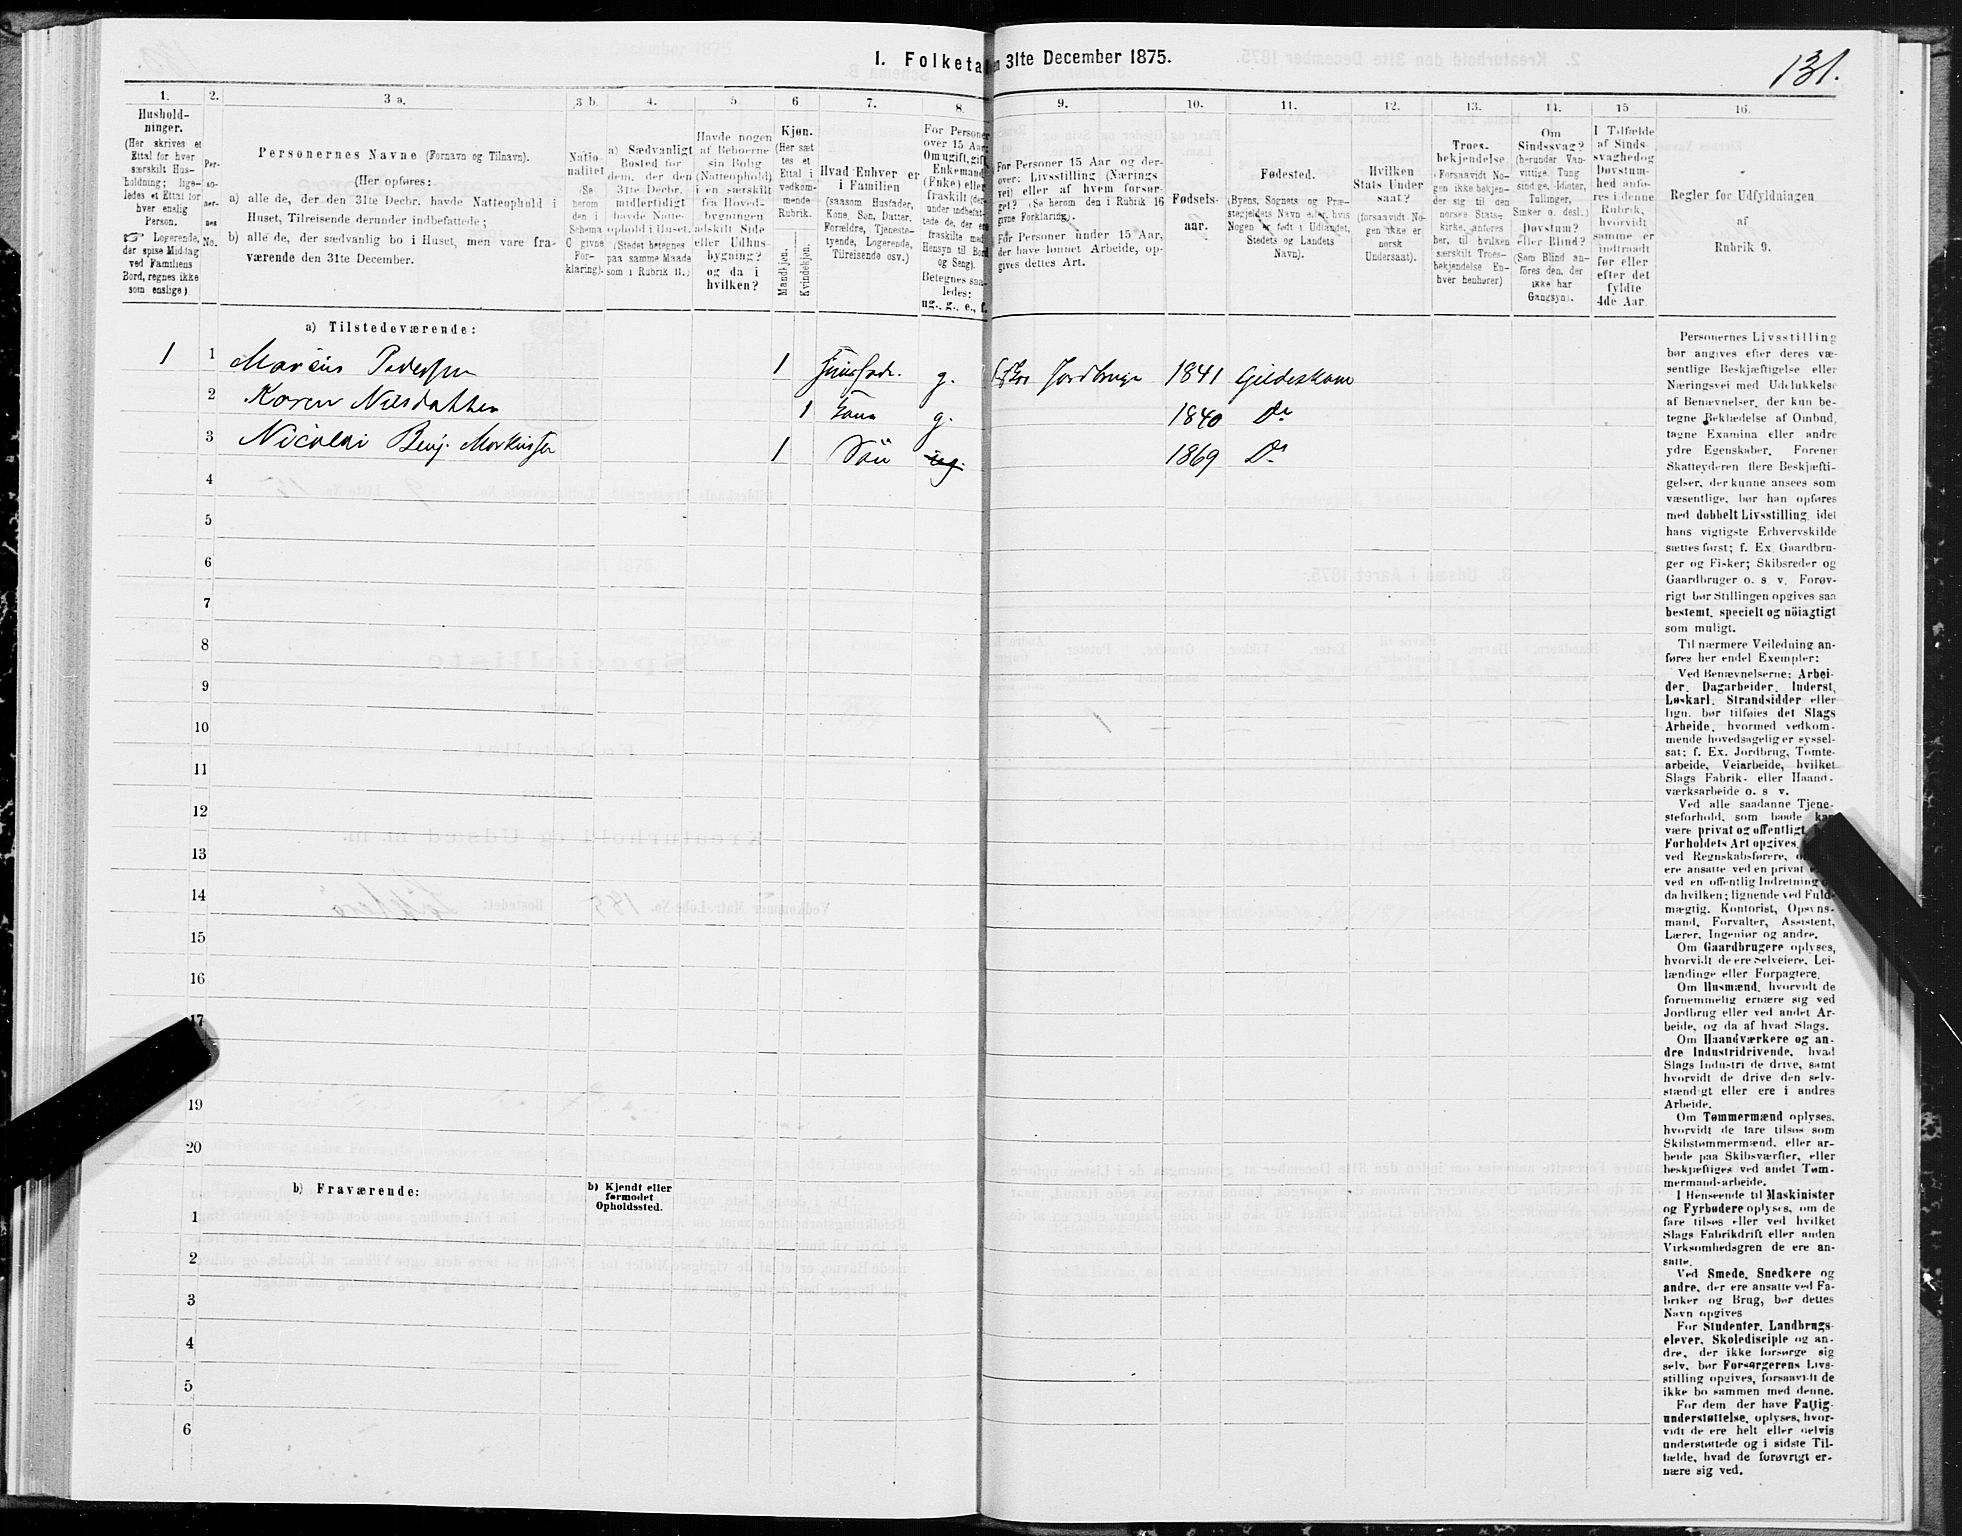 131.
I. Folketa
n 31te December 1875.
1.
2.
3 a.
3 b.
4.
5.
6
7.
8.
9.
10.
11.
12.
13.
14.
15
16.
Hushold-
ninger.
(Her skrives et
Ettal for hver
særskilt Hus-
holdning; lige-
ledes et Ettal for
hver enslig
Person.
☞ Logerende,
der spise Middag
ved Familiens
Bord, regnes ikke
som enslige.)
Per-
so-
ner-
nes
No.
Personernes Navne (Fornavn og Tilnavn).
(Her opføres:
a) alle de, der den 31te Decbr. havde Natteophold i
Huset, Tilreisende derunder indbefattede;
b) alle de, der sædvanlig bo i Huset, men vare fra-
værende den 31te December.
Natio-
nalitet
(Se
herom
den i
Schema
C givne
For-
klaring).
a) Sædvanligt
Bosted for
dem, der den
31te Decbr.
midlertidigt
havde Natte-
ophold i Huset.
(Stedet betegnes
paa samme Maade
som i Rubrik 11.)
Havde nogen
af Beboerne
sin Bolig
(Natteophold)
i en særskilt
fra Hoved-
bygningen
adskilt Side
eller Udhus-
bygning?
og da i
hvilken?
Kjøn.
(Her sæt
tes et
Ettal i
vedkom-
mende
Rubrik.
Mandkjøn.
Kvindekjøn.
Hvad Enhver er
i Familien
(saasom Husfader,
Kone, Søn, Datter,
Forældre, Tjeneste-
tyende, Logerende,
Tilreisende osv.)
For Personer
over 15 Aar:
Om ugift, gift,
Enkemand
(Enke) eller
fraskilt (der-
under indbefat-
tede de, der ere
fraskilte med
Hensyn til Bord
og Seng).
Betegnes saa-
ledes:
ug., g., e., f.
For Personer 15 Aar og der-
over: Livsstilling (Nærings
vei) eller af hvem forsør-
get? (Se herom den i Rubrik 16
givne Forklaring.)
For Personer under 15 Aar,
der have lønnet Arbeide, op-
gives dettes Art.
Fødsels-
aar.
Fødested.
(Byens, Sognets og Præ-
stegjeldets Navn eller, hvis
Nogen er født i Udlandet,
Stedets og Landets
Navn).
Hvilken
Stats Under
saat?
(forsaavidt No-
gen ikke er
norsk
Undersaat).
Troes-
bekjendelse
(Forsaavidt No-
gen ikke bekjen-
der sig til den
norske Stats-
kirke, anføres
her, til hvilken
særskilt Troes-
bekjendelse En-
hver henhører)
Om
Sindssvag?
(herunder Van-
vittige, Tung
sindige, Idioter,
Tullinger,
Sinker o. desl.)
Døvstum?
eller Blind?
(Som Blind an-
føres den, der
ikke har
Gangsyn).
I Tilfælde
af Sinds-
svaghed og
Døvstum-
hed anfø-
res i denne
Rubrik,
hvorvidt
samme er
indtraadt
før eller
efter det
fyldte
4de Aar.
Regler for Udfyldningen
af
Rubrik 9.
a) Tilstedeværende:
1 1 Marius Pedersen 1 Huusfader. g. Jordbruge 1841 Gildeskaal
2 Karen Nilsdatter 1 Kone g. 1840 Do
3 Nicolai Benj. Markussen 1 Søn ug. 1869 Do
4
5
6
7
8
9
10
11
12
13
14
15
16
17
19
20
b) Fraværende:
b) Kjendt eller
formodet
Opholdssted.
1
2
3
4
5
6
Personernes Livsstilling
bør angives efter deres væ-
sentlige Beskjæftigelse eller
Næringsvei med Udelukkelse
af Benævnelser, der kun be-
tegne Beklædelse af Ombud,
tagne Examina eller andre
ydre Egenskaber. Forener
Skatteyderen flere Beskjæfti-
gelser, der kunne ansees som
væsentlige, bør han opføres
med dobbelt Livsstilling, idet
hans vigtigste Erhvervskilde
sættes først; f. Ex. Gaardbru-
ger og Fisker; Skibsreder og
Gaardbruger o. s v. Forøv-
rigt bør Stillingen opgives saa
bestemt, specielt og nöiagtigt
som muligt.
Til nærmere Veiledning an-
føres her endel Exempler:
Ved Benævnelserne: Arbei-
der, Dagarbeider, Inderst,
Løskarl, Strandsidder eller
lign. bør tilføies det Slags
Arbeide, hvormed vedkom-
mende hovedsagelig er syssel-
sat; f. Ex. Jordbrug, Tomte-
arbeide, Veiarbeide, hvilket
Slags Fabrik- eller Haand-
værksarbeide o. s v.
Ved alle saadanne Tjene-
steforhold, som baade kan
være privat og offentligt,
Forholdets Art opgives,
ved Regnskabsførere,
ere ansatte ved en privat
ved en offentlig Indretning
da hvilken; lignende ved Fuld-
mægtig, Kontorist, Opsyns-
mand, Forvalter, Assistent,
Lærer, Ingeniør og andre.
Om Gaardbrugere oplyses,
hvorvidt de ere Selveiere, Lei-
lændinge eller Forpagtere.
Om Husmænd, hvorvidt de
fornemmelig ernære sig ved
Jordbrug eller ved andet Ar-
beide, og da af hvad Slags.
Om Haandværkere og an-
dre Industridrivende, hvad
Slags Industri de drive, samt
hvorvidt de drive den selv-
stændigt eller ere i andres
Arbeide.
Om Tømmermænd oplyses,
hvorvidt de fare tilsøs som
Skibstømmermænd, eller ar-
beide paa Skibsværfter, eller
beskjæftiges ved andet Tøm-
mermand-arbeide.
I Henseende til Maskinister
og Fyrbødere oplyses, om de
fare tilsøs eller ved hvilket
Slags Fabrikdrift eller anden
Virksomhedsgren de ere an-
satte.
Ved Smede, Snedkere og
andre, der ere ansatte ved Fa-
briker og Brug, bør dettes
Navn opgives
For Studenter, Landbrugs-
elever, Skoledisciple og an-
dre, der ikke forsørge sig
selv, bør Forsørgerens Livs-
stilling opgives, forsaavidt de
ikke bo sammen med denne.
For dem, der have Fattig-
understøttelse, oplyses, hvor-
vidt de ere helt eller delvis
understøttede og i sidste Til-
fælde, hvad de forøvrigt er-
nære sig ved.